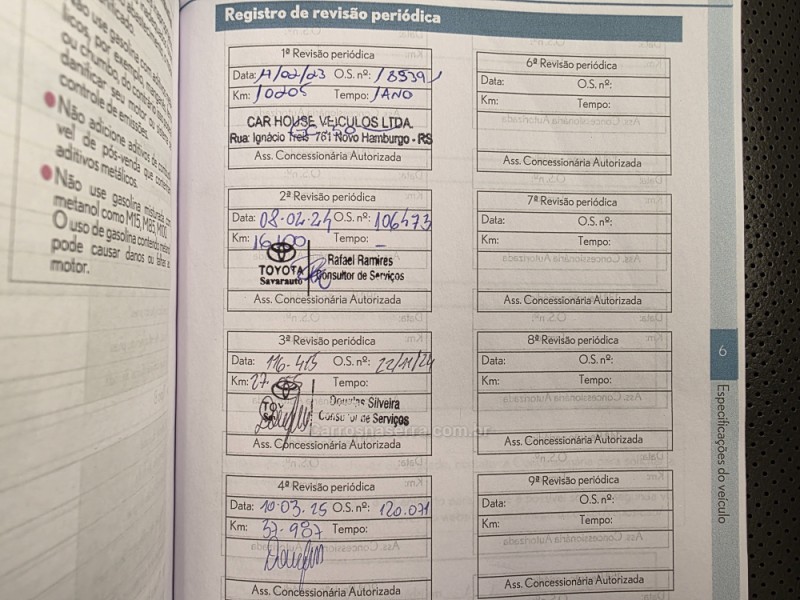 Registro de revisão periódica
1ª Revisão periódica
Data: 17/02/23 O.S. nº: 18539
Km: 10205 Tempo: 1 ANO
CAR HOUSE VEICULOS LTDA.
Rua: Ignácio Treis 761 Novo Hamburgo - RS
Ass. Concessionária Autorizada
2ª Revisão periódica
Data: 08.02.24 O.S. nº: 106473
Km: 16100 Tempo: –
TOYOTA
Savarauto
Rafael Ramires
Consultor de Serviços
Ass. Concessionária Autorizada
3ª Revisão periódica
Data: 116.415 O.S. nº: 22/11/24
Km: 27. Tempo:
Douglas Silveira
Consultor de Serviços
carrosnaserra.com.br
Ass. Concessionária Autorizada
4ª Revisão periódica
Data: 10.03.25 O.S. nº: 120.071
Km: 37.987 Tempo:
Ass. Concessionária Autorizada
6ª Revisão periódica
Data: O.S. nº:
Km: Tempo:
Ass. Concessionária Autorizada
7ª Revisão periódica
Data: O.S. nº:
Km: Tempo:
Ass. Concessionária Autorizada
8ª Revisão periódica
Data: O.S. nº:
Km: Tempo:
Ass. Concessionária Autorizada
9ª Revisão periódica
Data: O.S. nº:
Km: Tempo:
Ass. Concessionária Autorizada
6
Especificações do veículo
não use gasolina com aditivos
licos, por exemplo, manganês,
ou chumbo, do contrário
danificar seu motor ou sistema
controle de emissões.
Não adicione aditivos de combustí
vel de pós-venda que contenham
aditivos metálicos.
Não use gasolina misturada com
metanol como M15, M85, M100.
O uso de gasolina contendo metanol
pode causar danos ou falhas
motor.